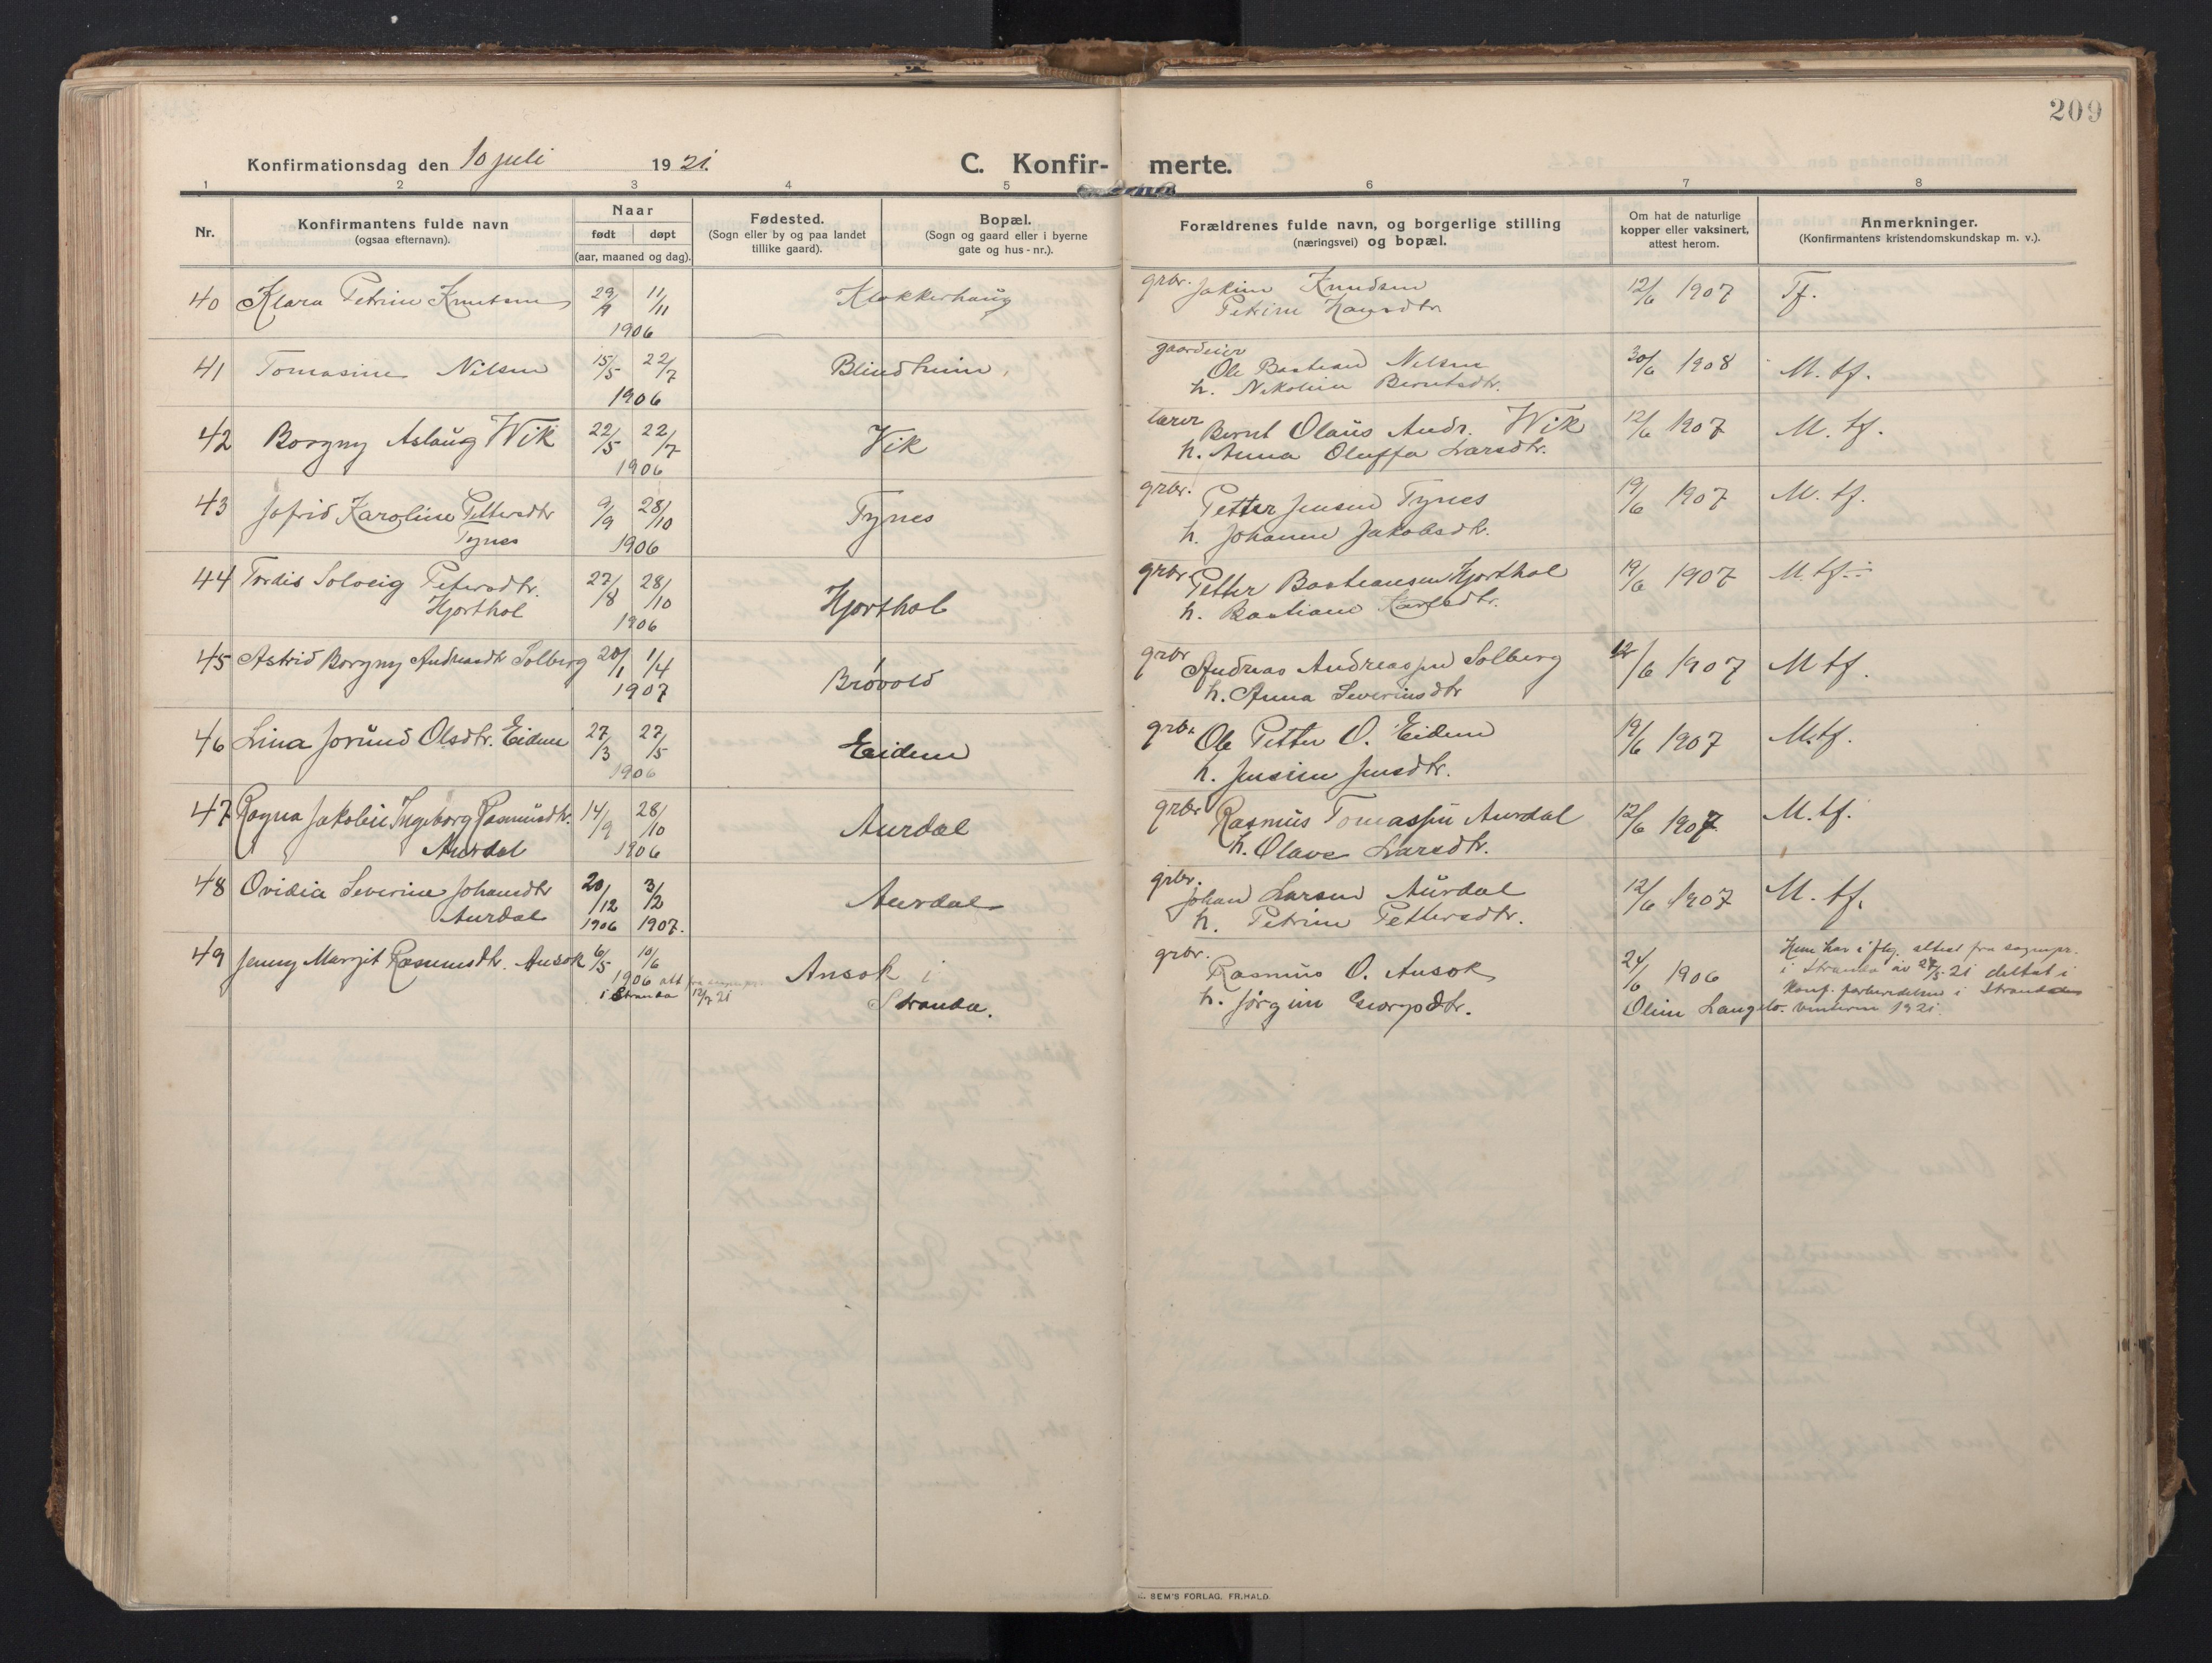 209
Konfirmationsdag den 10 juli 1921.
C. Konfir- merte.
1 2 3 4 5 6 7 8
Nr.
Konfirmantens fulde navn
(ogsaa efternavn).
Naar
født døpt
(aar, maaned og dag).
Fødested.
(Sogn eller by og paa landet
tillike gaard).
Bopæl.
(Sogn og gaard eller i byerne
gate og hus-nr.).
Forældrenes fulde navn, og borgerlige stilling
(næringsvei) og bopæl.
Om hat de naturlige
kopper eller vaksinert,
attest herom.
Anmerkninger.
(Konfirmantens kristendomskundskap m. v.).
40 Klara Petrine Knutsen 29/9 11/11 Klokkerhaug grbr. Jakim Knudsen 12/6 1907 Tf.
1906 Petrine Hansdtr
41 Tomasine Nilsen 15/5 22/7 Blindheim gaardeier Ole Bastian Nilsen 30/6 1908 M. tf.
1906 h. Nikoline Berntsdtr.
42 Borgny Aslaug Wik 22/5 22/7 Vik lærer Bernt Olaus Andr. Wik 12/6 1907 M. tf.
1906 h. Anna Oluffa Larsdtr.
43 Jofrid Karoline Pettersdtr 9/9 28/10 Tynes grbr. Petter Jensen Tynes 19/6 1907 M. tf.
Tynes 1906 h. Johanne Jakobsdtr.
44 Tordis Solveig Petersdtr. 27/8 28/10 Hjorthol grbr Petter Bastiansen Hjorthol 19/6 1907 M. tf.
Hjorthol 1906 h. Bastiane Karlsdtr.
45 Astrid Borgny Andreasdtr Solberg 20/1 1/4 Brøvold grbr Andreas Andreassen Solberg 12/6 1907 M tf.
1907 h. Anna Severinsdtr
46 Lina Jorund Olsdtr. Eidem 27/3 27/5 Eidem grbr. Ole Petter O. Eidem 19/6 1907 M. tf.
1906 h. Jensine Jensdtr.
47 Ragna Jakobie Ingeborg Rasmusdtr. 14/9 28/10 Aurdal grbr Rasmus Tomassen Aurdal 12/6 1907 M. tf.
Aurdal 1906 h. Olave Larsdtr.
48 Ovidia Severine Johansdtr 20/12 3/2 Aurdal grbr. Johan Larsen Aurdal 12/6 1907 M. tf.
Aurdal 1906 1907. h. Petrine Pettersdtr.
49 Jenny Margit Rasmusdtr. Ansok 6/5 10/6 Ansok i grbr. Rasmus O. Ansok 24/6 1906 Hun har iflg. attest fra sognepr.
1906 att fra sognepr. i Stranda 12/7 21 Stranda. h. Jørgine Georgsdtr. i Stranda av 27/5 21 deltat i
konf. forberedelsen i Stranda
Oline Langlo. vinteren 1921.
SEM'S FORLAG, FR.HALD.